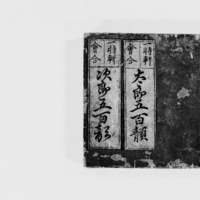 一時軒
會合
太郎五百韻
一時軒
會合
次郎五百韻